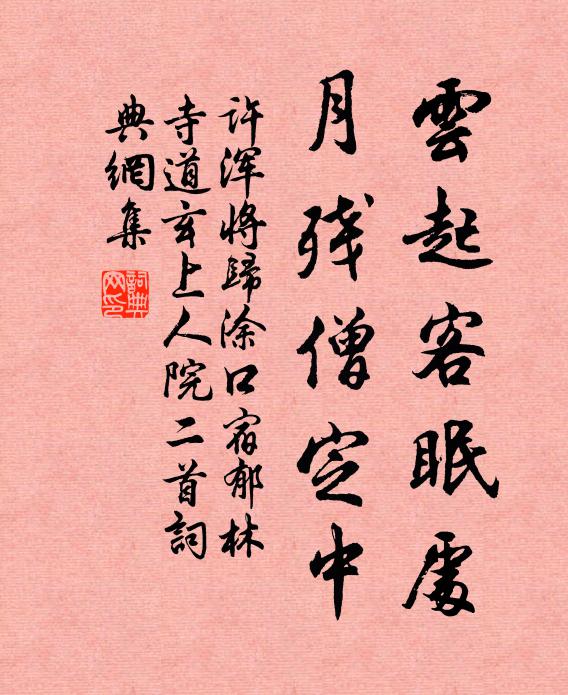 雲起客眠處
月殘僧定中
许渾將歸涂口宿郁林
寺道玄上人院二首詞
典網集
詞典
网印